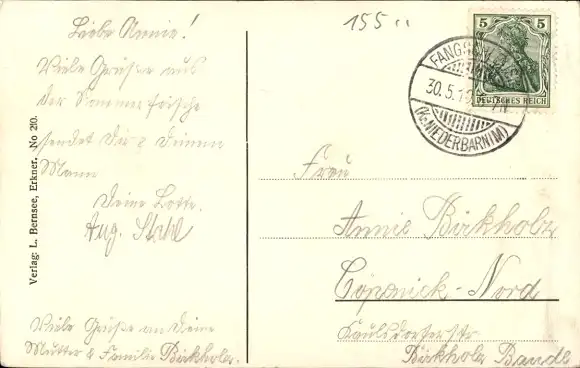 Liebe Annie!
Viele Grüße aus
der Sommerfrische
sendet Dir & Deinem
Mann
Deine Lotte.
Aug. Stahl
Viele Grüße an Deine
Mutter & Familie Birkholz.
Verlag: L. Bernsee, Erkner. No 210.
155
5 5
DEUTSCHES REICH
FANG
30.5.1
(Kr. NIEDERBARNIM)
Frau
Annie Birkholz
Cöpenick-Nord
Kaulsdorferstr
Birkholz